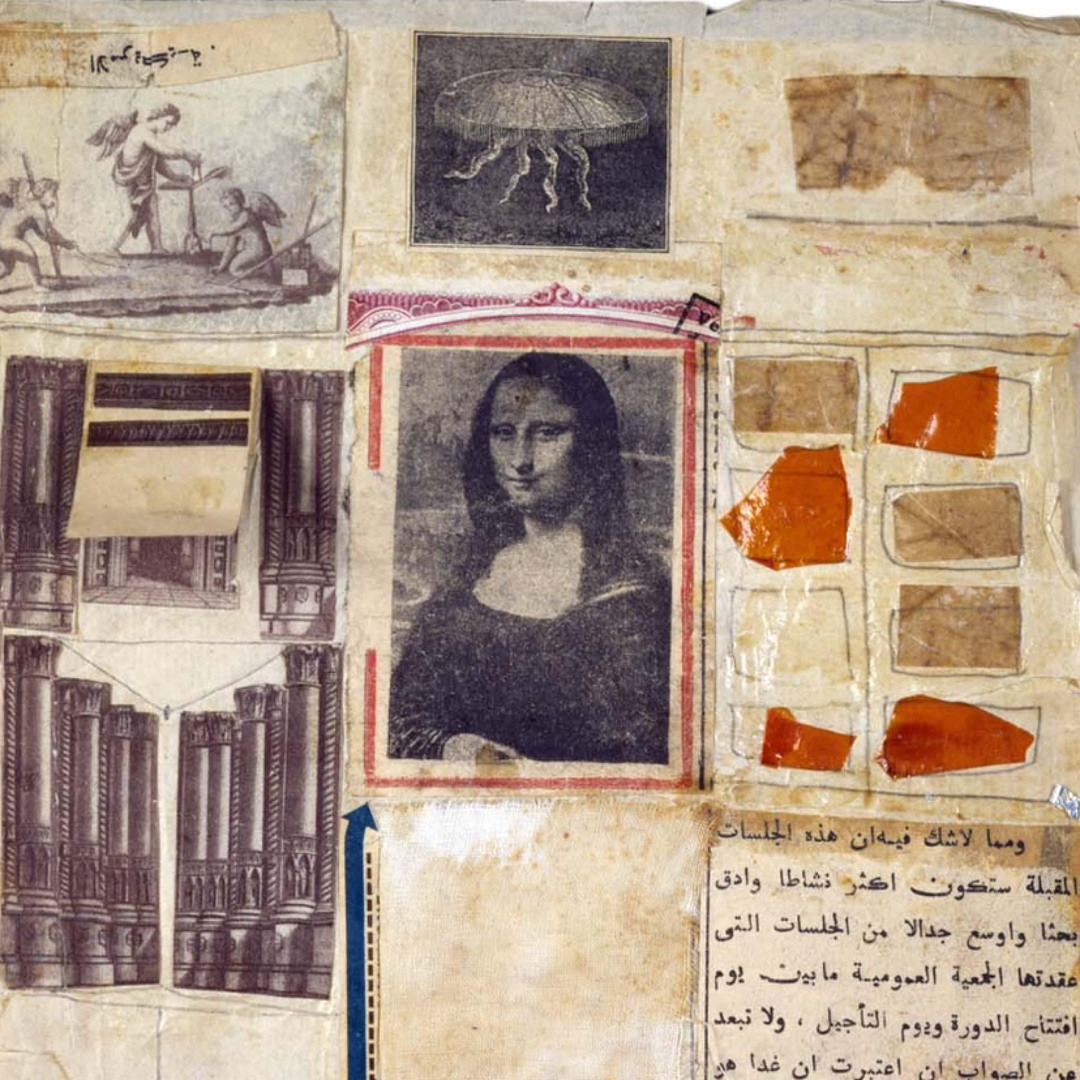 الامريكية
ve
ومما لاشك فيه ان هذه الجلسات
المقبلة ستكون اكثر نشاطا وادق
بحثا واوسع جدالا من الجلسات التى
عقدتها الجمعية العمومية مابين يوم
افتتاح الدورة ويوم التأجيل ، ولا نبعد
عن الصواب ان اعتبرت ان غدا هو